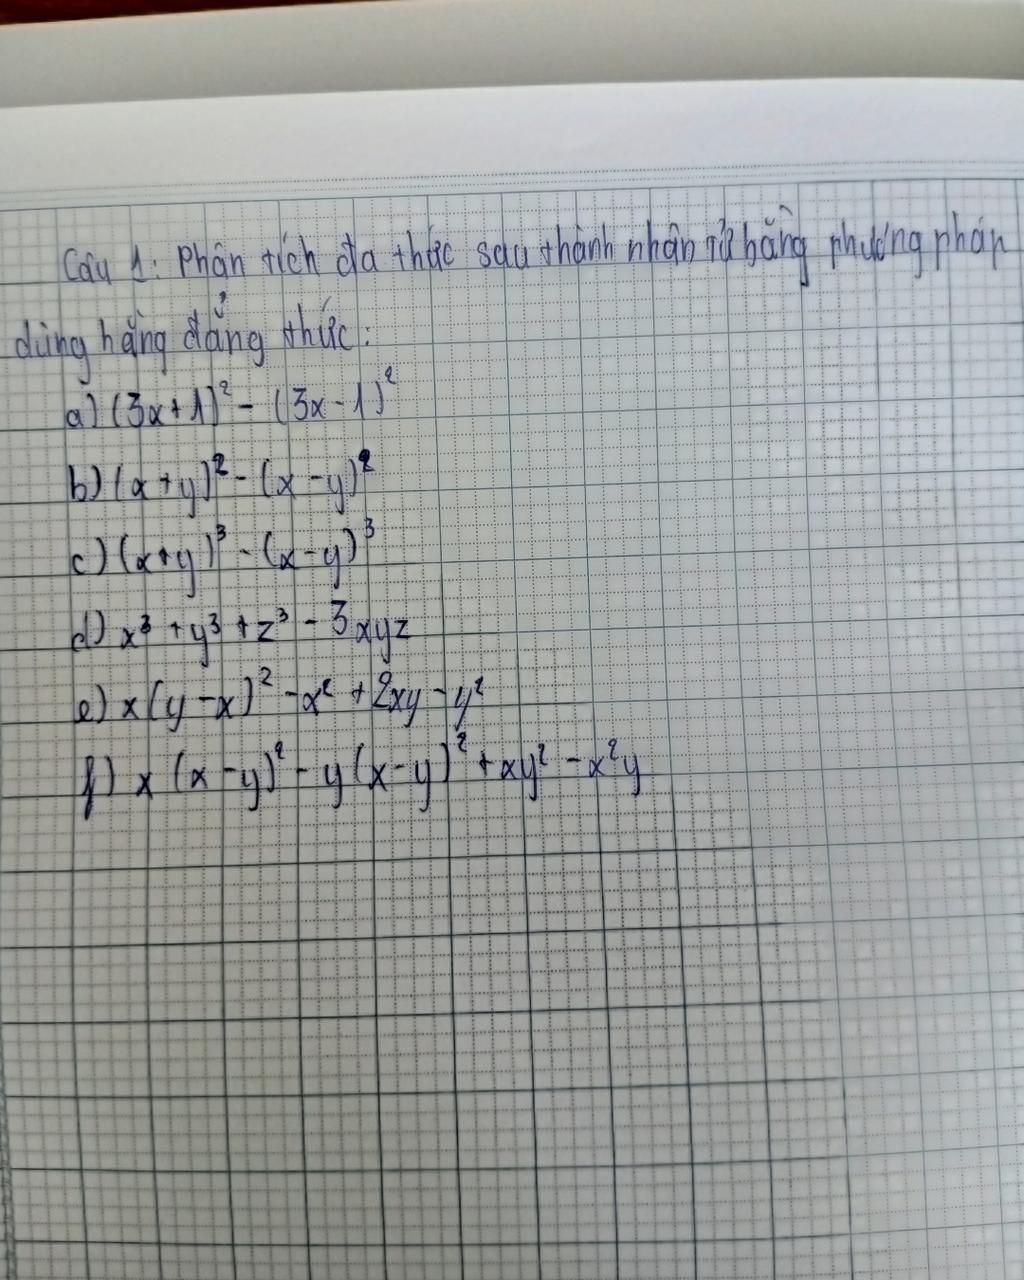 Câu 1: Phân tích đa thức sau thành nhân tử bằng phương pháp
dùng hằng đẳng thức:
a) (3x+1)² - (3x-1)²
b) (x+y)² - (x-y)²
c) (x+y)³ - (x-y)³
d) x³ + y³ + z³ - 3xyz
e) x(y-x)² - x² + 2xy - y²
f) x(x-y)² - y(x-y)² + xy² - x²y